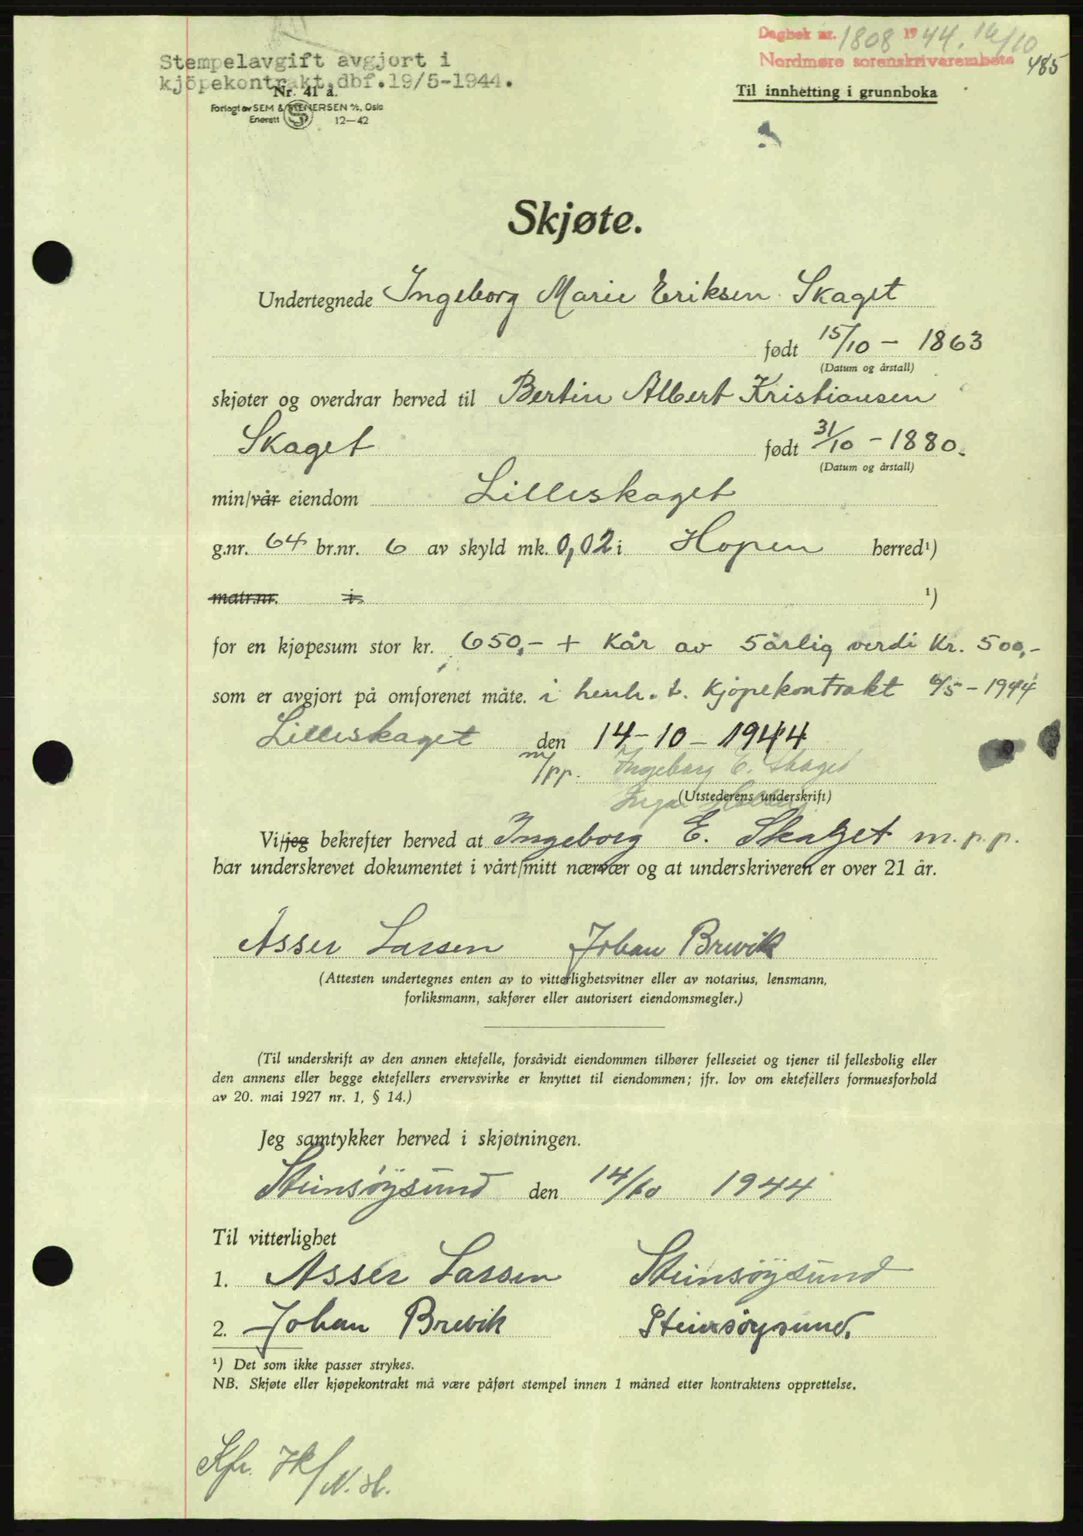 Dagbok nr. 1808 1944. 16/10
Nordmøre sorenskriverembete 485
Stempelavgift avgjort i
kjöpekontrakt,dbf.19/5-1944.
Nr. 41 a.
Forlagt av SEM & STENERSEN A/S, Oslo
Enerett 12—42
Til innhefting i grunnboka
Skjøte.
Undertegnede Ingeborg Marie Eriksen Skaget
født 15/10 - 1863
(Datum og årstall)
skjøter og overdrar herved til Bertin Albert Kristiansen
Skaget født 31/10 - 1880.
(Datum og årstall)
min/vår eiendom Lilleskaget
g.nr. 64 br.nr. 6 av skyld mk. 0,02 i Hopen herred¹)
matr.nr. i ¹)
for en kjøpesum stor kr. 650,- + kår av 5årlig verdi kr. 500,-
som er avgjort på omforenet måte. i henh. t. kjöpekontrakt 6/5 - 1944
Lilleskaget den 14-10-1944
m/pp. Ingeborg E. Skaget
(Utstederens underskrift)
Vi/jeg bekrefter herved at Ingeborg E. Skaget m.p.p.
har underskrevet dokumentet i vårt/mitt nærvær og at underskriveren er over 21 år.
Asser Larsen Johan Brevik
(Attesten undertegnes enten av to vitterlighetsvitner eller av notarius, lensmann,
forliksmann, sakfører eller autorisert eiendomsmegler.)
(Til underskrift av den annen ektefelle, forsåvidt eiendommen tilhører felleseiet og tjener til fellesbolig eller
den annens eller begge ektefellers ervervsvirke er knyttet til eiendommen; jfr. lov om ektefellers formuesforhold
av 20. mai 1927 nr. 1, § 14.)
Jeg samtykker herved i skjøtningen.
Steinsöysund den 14/10 1944
Til vitterlighet
1. Asser Larsen Steinsöysund
2. Johan Brevik Steinsöysund.
¹) Det som ikke passer strykes.
NB. Skjøte eller kjøpekontrakt må være påført stempel innen 1 måned etter kontraktens opprettelse.
Kfr. /N. H.